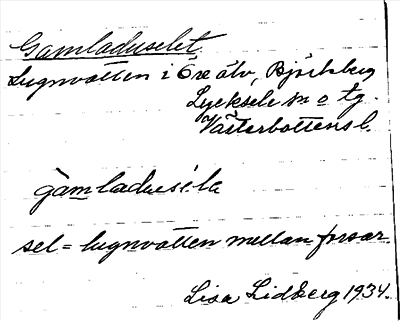 Gamladuselet
Lugnvatten i Öre älv, Björksberg
Lycksele sn o tg.
Västerbottens l.
gàmladusìla
sel = lugnvatten mellan forsar.
Lisa Lidberg 1934.